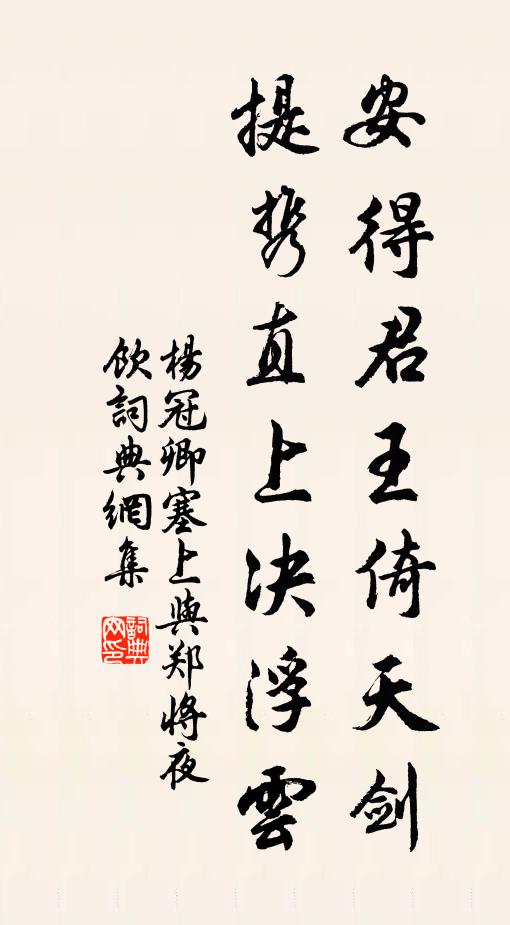 安得君王倚天剑
提携直上决浮雲
楊冠卿塞上與郑將夜
飲詞典網集
詞典
网印